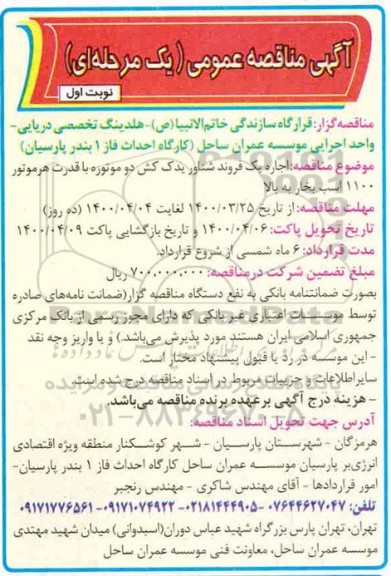 آگهی مناقصه عمومی (یک مرحله‌ای)
نوبت اول
مناقصه‌گزار: قرارگاه سازندگی خاتم‌الانبیا(ص)-هلدینگ تخصصی دریایی-
واحد اجرایی موسسه عمران ساحل (کارگاه احداث فاز ۱ بندر پارسیان)
موضوع مناقصه: اجاره یک فروند شناور یدک کش دو موتوره با قدرت هر موتور
۱۱۰۰ اسب بخار به بالا
مهلت مناقصه: از تاریخ ۱۴۰۰/۰۳/۲۵ لغایت ۱۴۰۰/۰۴/۰۴ (ده روز)
تاریخ تحویل پاکت: ۱۴۰۰/۰۴/۰۶ و تاریخ بازگشایی پاکت ۱۴۰۰/۰۴/۰۹
مدت قرارداد: ۶ ماه شمسی از شروع قرارداد.
مبلغ تضمین شرکت در مناقصه: ۷۰۰.۰۰۰.۰۰۰ ریال
بصورت ضمانتنامه بانکی به نفع دستگاه مناقصه گزار (ضمانت نامه‌های صادره
توسط موسسات اعتباری غیر بانکی که دارای مجوز رسمی از بانک مرکزی
جمهوری اسلامی ایران هستند مورد پذیرش می‌باشد) و یا واریز وجه نقد
- این موسسه در رد یا قبول پیشنهاد مختار است.
سایر اطلاعات و جزییات مربوط در اسناد مناقصه درج شده است.
- هزینه درج آگهی بر عهده برنده مناقصه می‌باشد.
۰۲۱-۸۸۳۴۹۶۷۰-۵
آدرس جهت تحویل اسناد مناقصه:
هرمزگان - شهرستان پارسیان - شهر کوشکنار منطقه ویژه اقتصادی
انرژی‌بر پارسیان موسسه عمران ساحل کارگاه احداث فاز ۱ بندر پارسیان-
امور قراردادها - آقای مهندس شاکری - مهندس رنجبر
تلفن: ۰۷۶۴۴۶۲۷۰۴۷-۰۲۱۸۱۴۴۴۹۰۵-۰۹۱۷۱۰۷۴۹۲۲-۰۹۱۷۱۷۷۶۵۶۱
تهران، تهران پارس بزرگراه شهید عباس دوران(اسبدوانی) میدان شهید مهتدی
موسسه عمران ساحل، معاونت فنی موسسه عمران ساحل